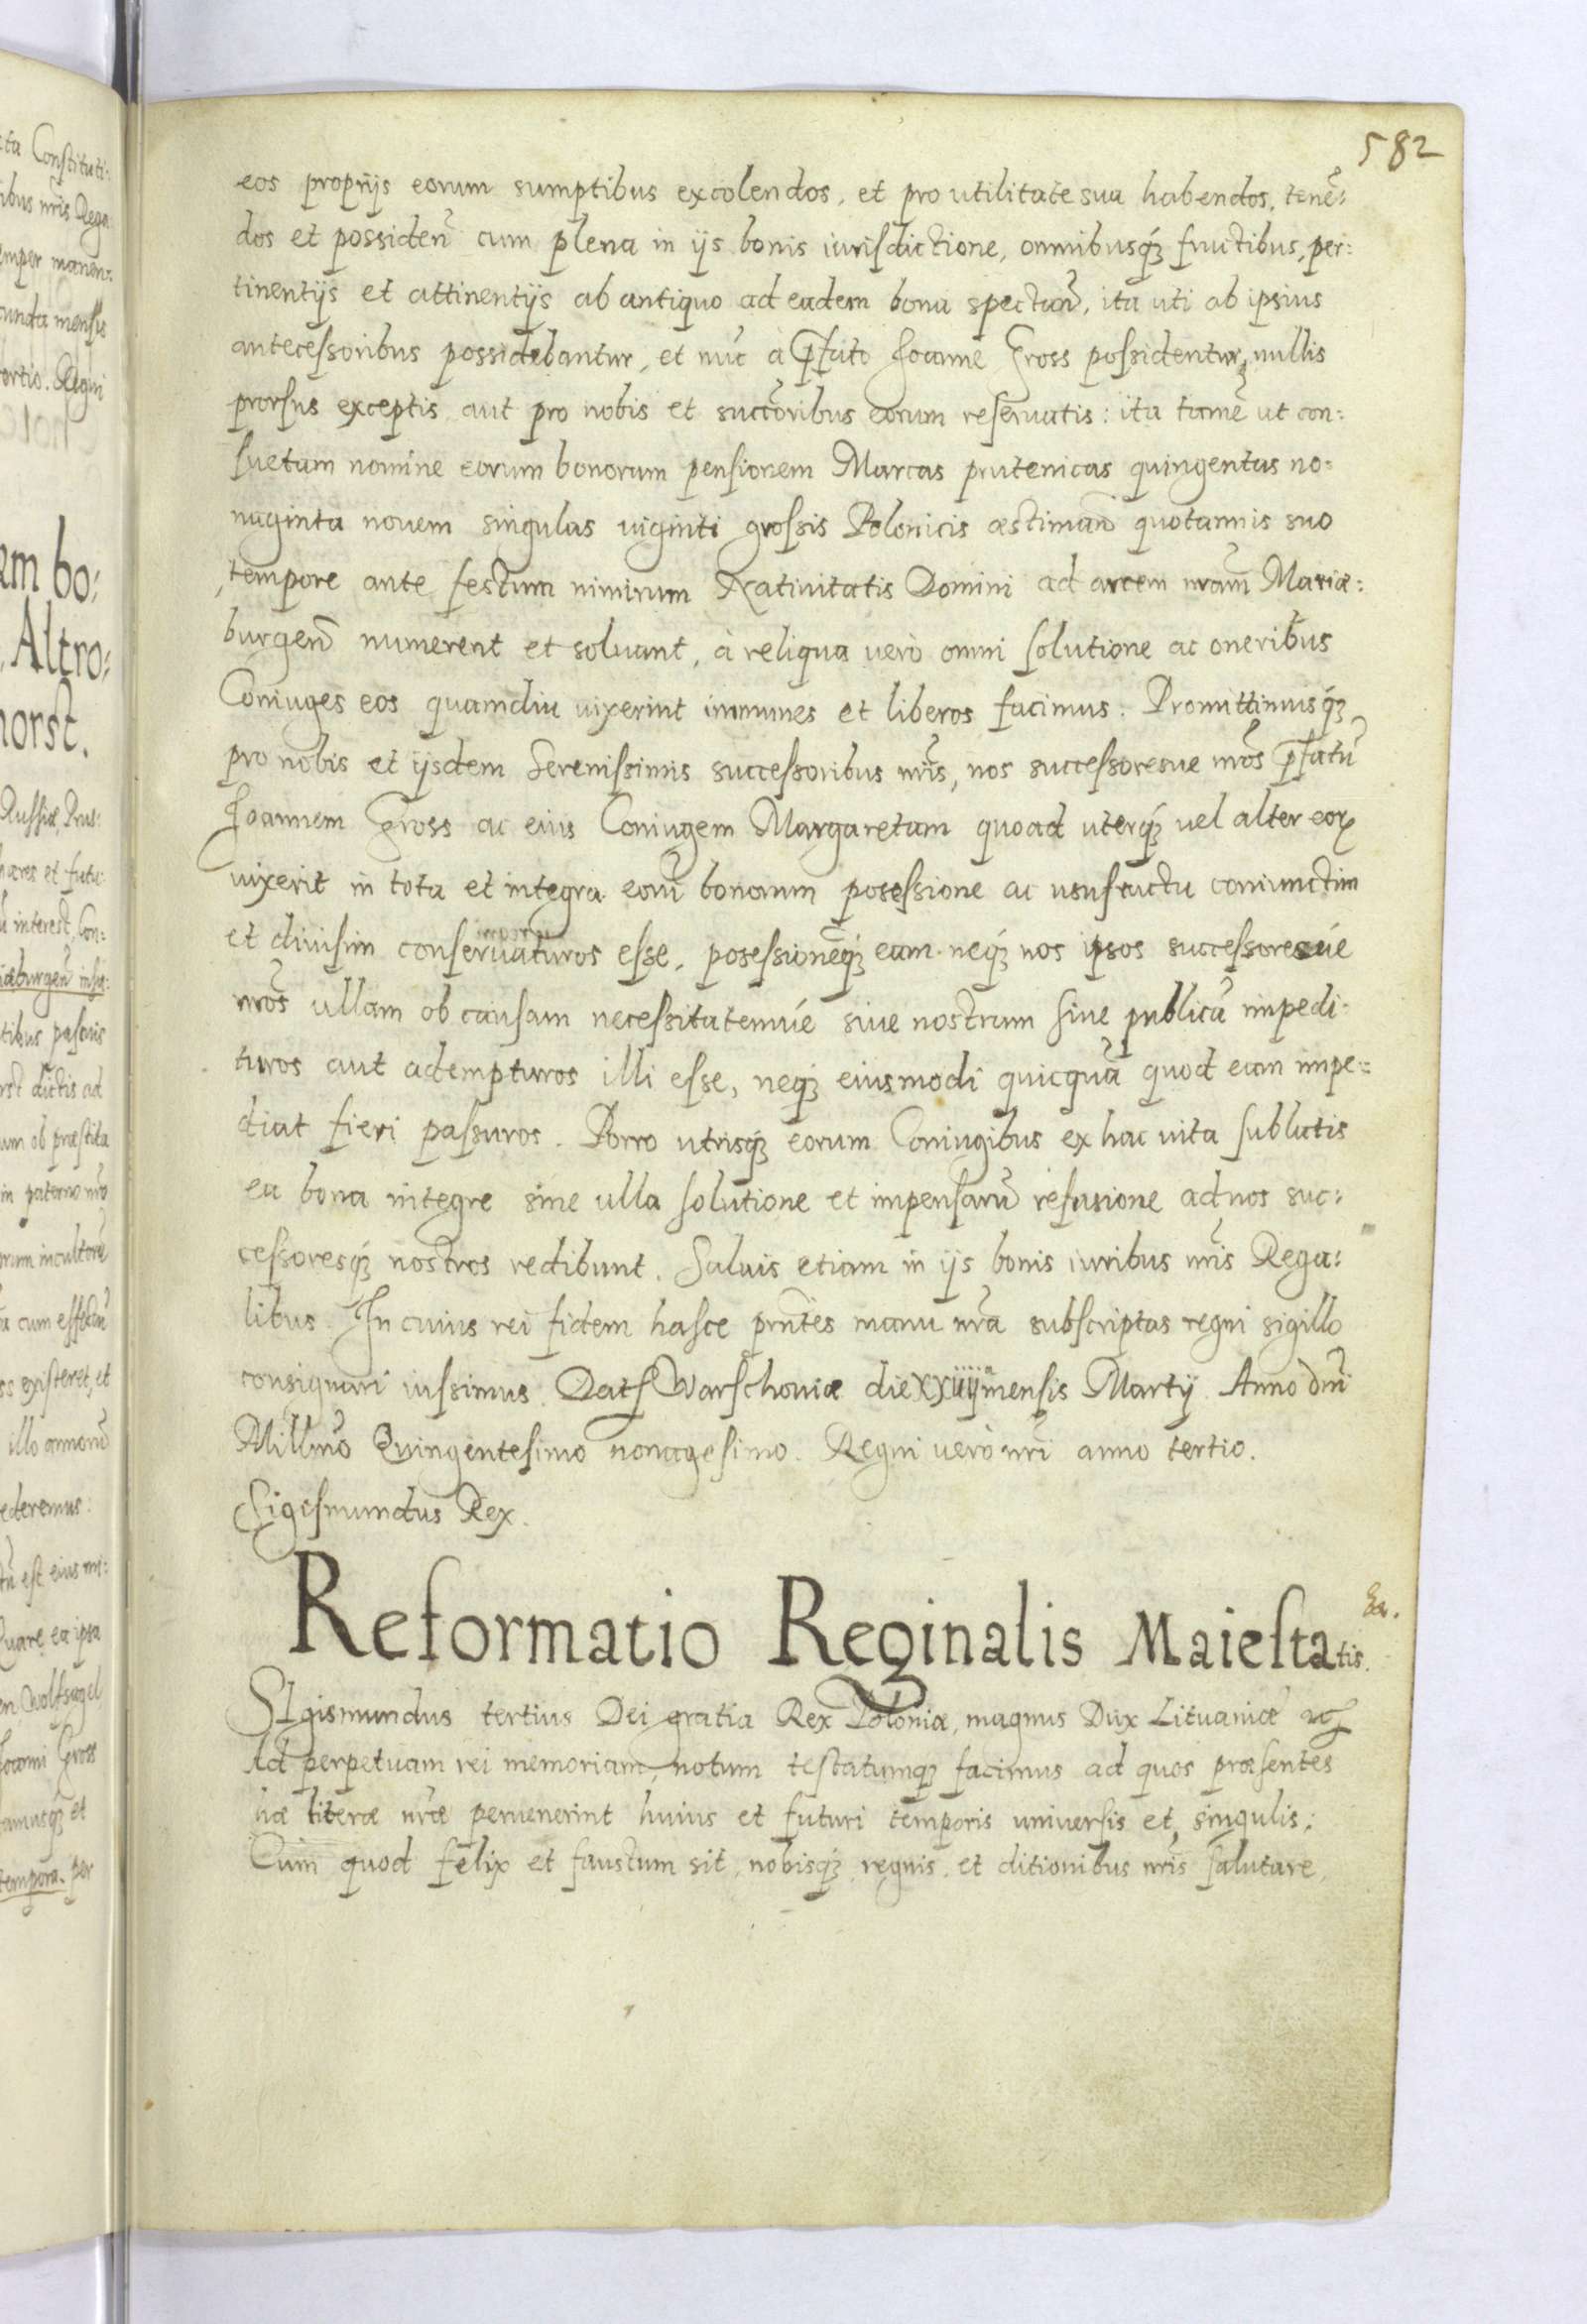 582
eos proprijs eorum sumptibus excolendos, et pro utilitate sua habendos, tenē:
dos et possiden̄ cum plena in ijs bonis iurisdictione, omnibusq́ʒ fructibus, per:
tinentijs et attinentijs ab antiquo ad eadem bona spectan̄, ita uti ab ipsius
antecessoribus possidebantur, et nūc à p̄fato Joanne Gross possidentur, nullis
prorsus exceptis aut pro nobis et succōribus eorum reseruatis: ita tamē ut con:
suetam nomine eorum bonorum pensionem Marcas prutenicas quingentas no:
naginta nouem singulas uiginti grossis Polonicis æstiman̄ quotannis suo
tempore ante festum nimirum Natiuitatis Domini ad arcem nrām Mariæ:
burgen̄ numerent et soluant, à reliqua verò omni solutione ac oneribus
Coniuges eos quamdiu uixerint immunes et liberos facimus: Promittimusq́ʒ
pro nobis et ijsdem Serenissimis successoribus nrīs, nos successoresue nrōs p̄fatū
Joannem Gross ac eius Coniugem Margaretam quoad uterq́ʒ uel alter eorꝝ
uixerit in tota et integra eorū bonorum posessione ac usufructu coniunctim
et diuisim conseruaturos esse, posessionēq́ʒ eam neq́ʒ nos ipsos successoresúe
nrōs ullam ob causam necessitatemúe siue nostram siue publicā impedi:
turos aut adempturos illi esse, neq́ʒ eiusmodi quicquā quod eam impe:
diat fieri passuros. Porro utrisq́ʒ eorum Coniugibus ex hac uita sublatis
ea bona integre sine ulla solutione et impensarū refusione ad nos suc:
cessoresq́ʒ nostros redibunt. Saluis etiam in ijs bonis iuribus nrīs Rega:
libus. In cuius rei fidem hasce prn̄tes manu nrā subscriptas regni sigillo
consignari iussimus. Dat Warschouiæ die XXiiij mensis Martij Anno dnī
Millmō Quingentesimo nonagesimo. Regni verò nrī anno tertio.
Sigismundus Rex.
Reformatio Reginalis Maiestatis.
SIgismundus tertius Dei gratia Rex Poloniæ, magnus Dux Lituaniæ
Ad perpetuam rei memoriam, notum testatumqʒ facimus ad quos præsentes
hæ literæ nræ peruenerint huius et futuri temporis uniuersis et singulis:
Cum quod felix et faustum sit, nobisq́ʒ regnis et ditionibus nrīs salutare,